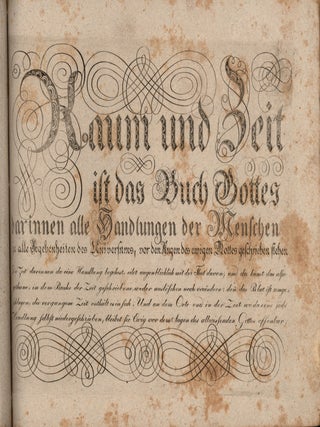 Raum und Zeit
ist das Buch Gottes
darinnen alle Handlungen der Menschen
alle Begebenheiten des Universums, vor den Augen des ewigen Gottes geschrieben stehen
Zeit darinnen da eine Handlung begehest, eilet augenblicklich mit der That davon; und du kanst das
in dem Buche der Zeit geschriebene, weder auslöschen noch verändern: den das Blat ist
die vergangene Zeit enthält in sich. Und an dem Orte und in der Zeit wo eine
Handlung selbst niedergeschrieben, bleibet sie Ewig vor denen Augen des allwissenden Gottes offenbar.